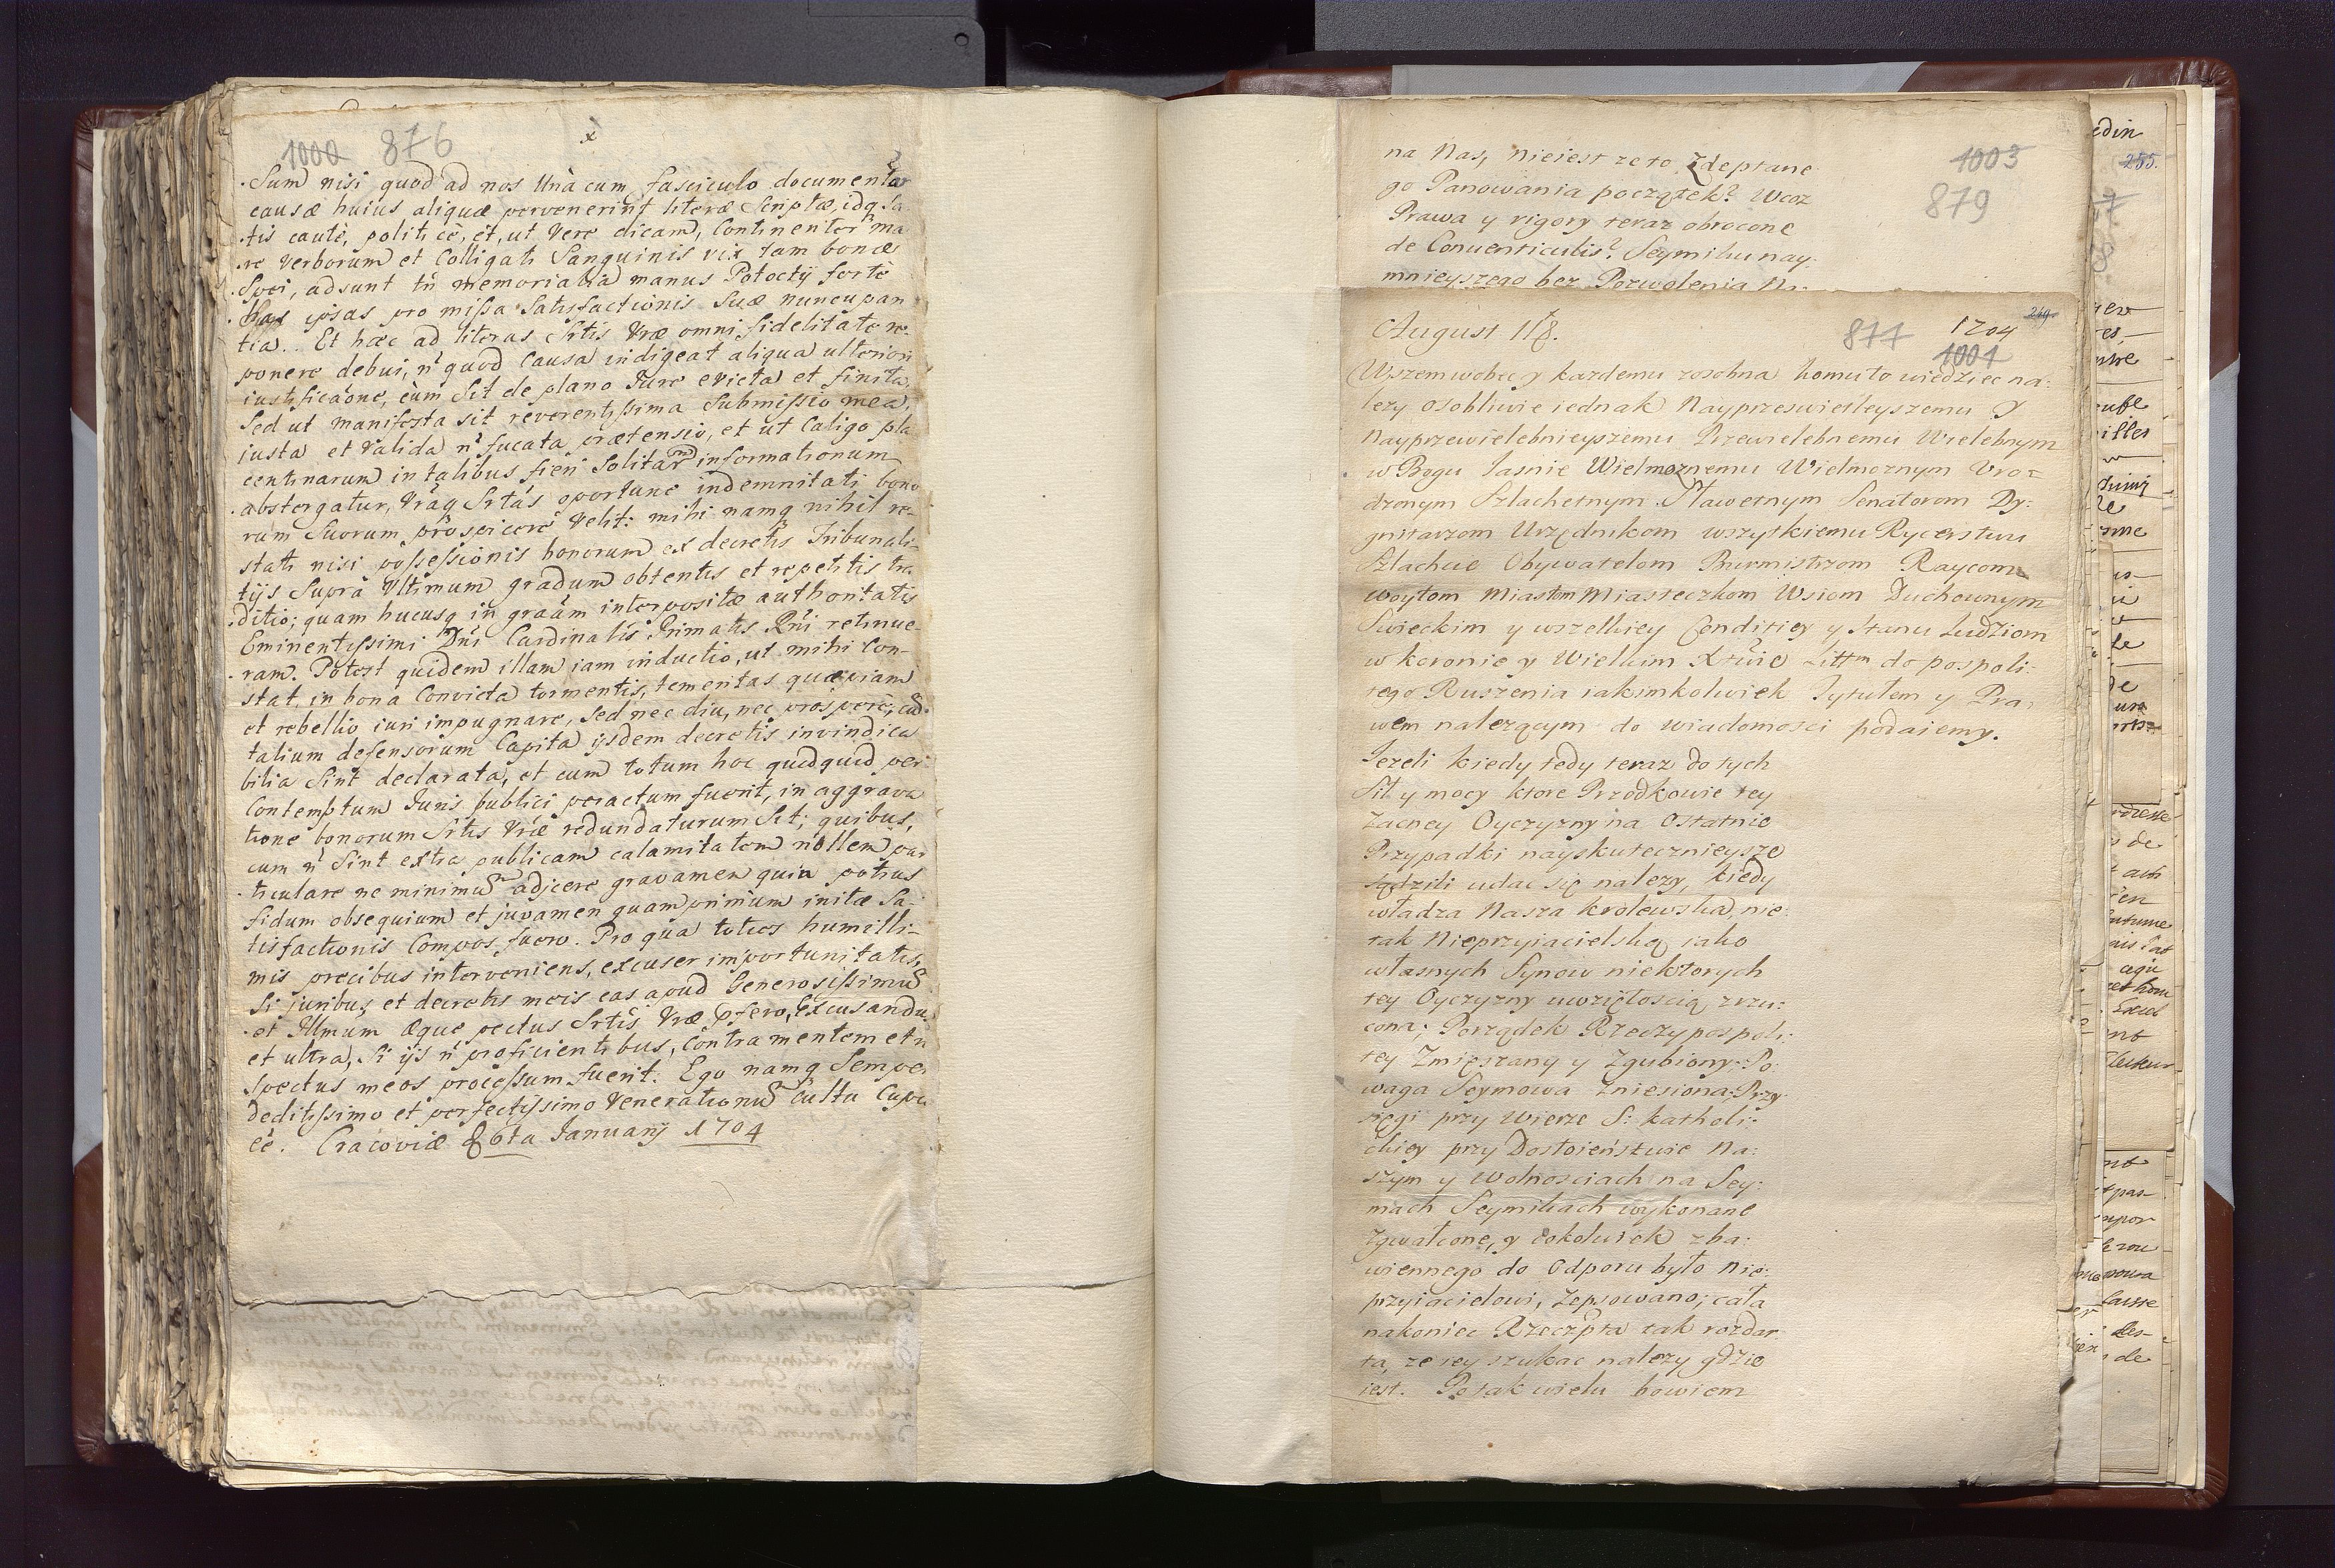 1000 876
x
Sum nisi quod ad nos Unà cum fasciculo documentar
causæ huius aliquæ pervenerint literæ Scriptæ, idq, Sa
tis cautè, politicè, et, ut Vere dicam, Continenter ma
re Verborum et Colligati Sanguinis vix tam bonæ
Spei, adsunt tn memorialia manus Potoctÿ fortè
has ipsas pro missa Satisfactionis Suæ nuncupan
tia. Et hæc ad literas Srtis Vræ omni fidelitate re
ponere debui, n quod Causa indigeat aliqua ulteriori
iustificaone, cùm Sit de plano Jure evicta et finita,
Sed ut manifesta sit reverentissima Submissio mea,
iusta et Valida n fucata prætensio, et ut Caligo pla
centinarum in talibus fieri Solitar informationum
abstergatur, Vraq Srtas oportune indemnitati bono
rum Suorum prospicere Velit: mihi namq nihil re-
stati nisi possessionis bonorum ex decretis Tribunali-
tijs Suprà Ultimum gradum obtentis et repetitis tra
ditio; quam hucusq in graam interpositæ authoritatis
Eminentissimi Dni Cardinalis Primatis Rni retinue-
ram. Potest quidem illam iam inductio, ut mihi Con-
stat, in bona Convicta tormentis, temeritas quæpiam
et rebellio iuri impugnare, Sed nec diu, nec prosperè, cu
talium defensorum Capita ijsdem decretis invindica
bilia Sint declarata, et cum totum hoc quidquid per
Contemptum Juris publici peractum fuerit, in aggrava
tione bonorum Srtis Vræ redundaturum Sit; quibus,
cum n Sint extra publicam calamitatem nollem par
ticulare ne minimu adjicere gravamen quin potius
fidum obsequium et juvamen quamprimum initæ Sa-
tisfactionis Compos fuero. Pro qua toties humilli-
mis precibus interveniens, excuser importunitatis,
Si juribus et decretis meis eas apud Generosissimu
et Illmum æque pectus Srtis Vræ
et ultra, Si ijs n proficientibus, contra mentem et
Spectus meos processum fuerit. Ego namq Semper
deditissimo et perfectissimo Venerationu Cultu Cupio
ee. Cracoviæ 6ta Januarij 1704
na Nas, nieiest ze to Zdeptane
go Panowania początek? Wcoz
Prawa y rigory teraz obrocone
de Conventiculis? Seymiku nay
mnieyszego bez Pozwolenia Na:
1003
879
August II8.
877 1704
1001
219
Wszem wobec y kazdemu zosobna komu to wiedziec na:
lezy osobliwie iednak Nayprzeswietleyszemu y
Nayprzewielebnieyszemu Przewielebnemu Wielebnym
w Bogu Jasnie Wielmoznemu Wielmoznym Uro
dzonym Szlachetnym Sławetnym Senatorom Dy:
gnitarzom Urzędnikom wszytkiemu Rycerstwu
Szlachcie Obywatelom Burmistrzom Raycom
woytom Miastom Miasteczkom Wsiom Duchownym
Swieckim y wszelkiey Conditiey y Stanu Ludziom
w koronie y Wielkim Xtwie Littm do pospoli:
tego Ruszenia iakimkolwiek Tytułem y Pra,
wem nalezącym do wiadomosci podaiemy.
Jezeli kiedy tedy teraz do tych
Sił y mocy ktore Przodkowie tey
Zacney Oyczyzny na Ostatnie
Przypadki nayskutecznieysze
sądzili udac się nalezy, kiedy
władza Nasza krolewska, nie:
tak Nieprzyiacielską iako
własnych Synow niektorych
tey Oyczyzny uwziętoscią zrzu:
cona; Porządek Rzeczypospoli:
tey Zmięszany y Zgubiony: Po:
waga Seymowa zniesiona; Przy
sięgi przy Wierze S: katholi:
ckiey przy Dostoieństwie Na:
szym y Wolnosciach na Sey:
mach Seymikach wykonane
Zgwałcone, y cokolwiek zba:
wiennego do Odporu było Nie:
przyiacielowi, Zepsowano; cała
nakoniec Rzeczpta tak rozdar
ta, ze iey szukac nalezy gdzie
iest. Po tak wielu bowiem
285